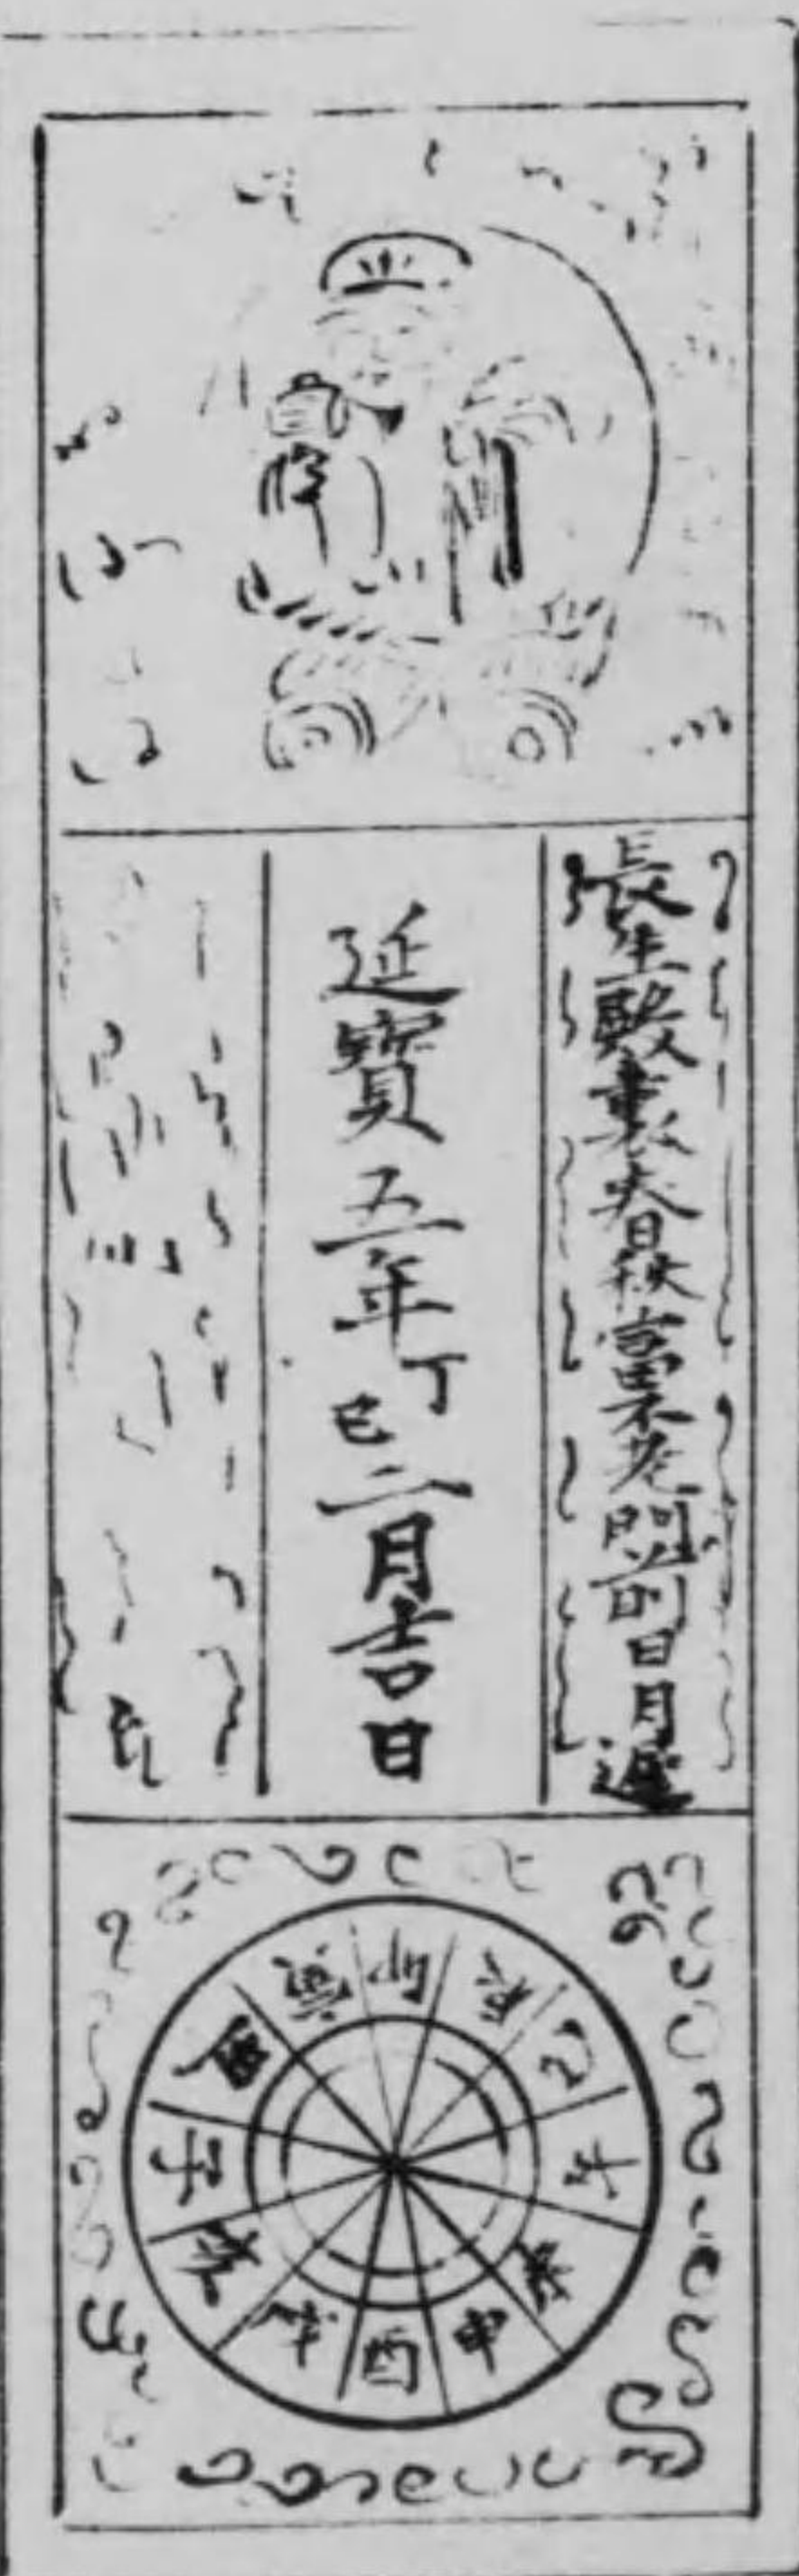 長生殿裏春秋富不老門前日月遲
延寶五年丁巳二月吉日
子丑寅卯辰巳午未申酉戌亥